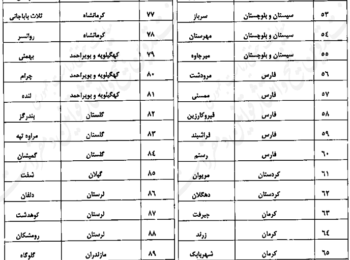 ۵۳ سیستان و بلوچستان سرباز
۵۴ سیستان و بلوچستان مهرستان
۵۵ سیستان و بلوچستان میرجاوه
۵۶ فارس مرودشت
۵۷ فارس ممسنی
۵۸ فارس قیروکارزین
۵۹ فارس فراشبند
۶۰ فارس رستم
۶۱ کردستان مریوان
۶۲ کردستان دهگلان
۶۳ کرمان جیرفت
۶۴ کرمان زرند
۶۵ کرمان شهربابک
۷۷ کرمانشاه ثلاث باباجانی
۷۸ کرمانشاه روانسر
۷۹ کهگیلویه و بویراحمد بهمئی
۸۰ کهگیلویه و بویراحمد چرام
۸۱ کهگیلویه و بویراحمد لنده
۸۲ گلستان بندرگز
۸۳ گلستان مراوه تپه
۸۴ گلستان گمیشان
۸۵ گیلان شفت
۸۶ لرستان دلفان
۸۷ لرستان کوهدشت
۸۸ لرستان رومشکان
۸۹ مازندران گلوگاه